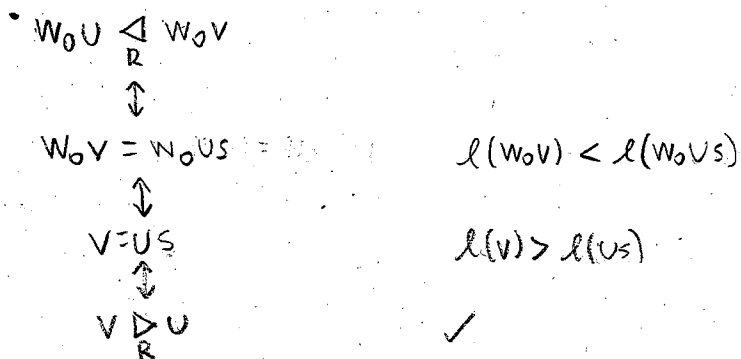 • W₀U ⊲_R W₀V
↕
W₀V = W₀US ℓ(W₀V) < ℓ(W₀US)
↕
V=US ℓ(V) > ℓ(US)
↕
V ⊳_R U ✓